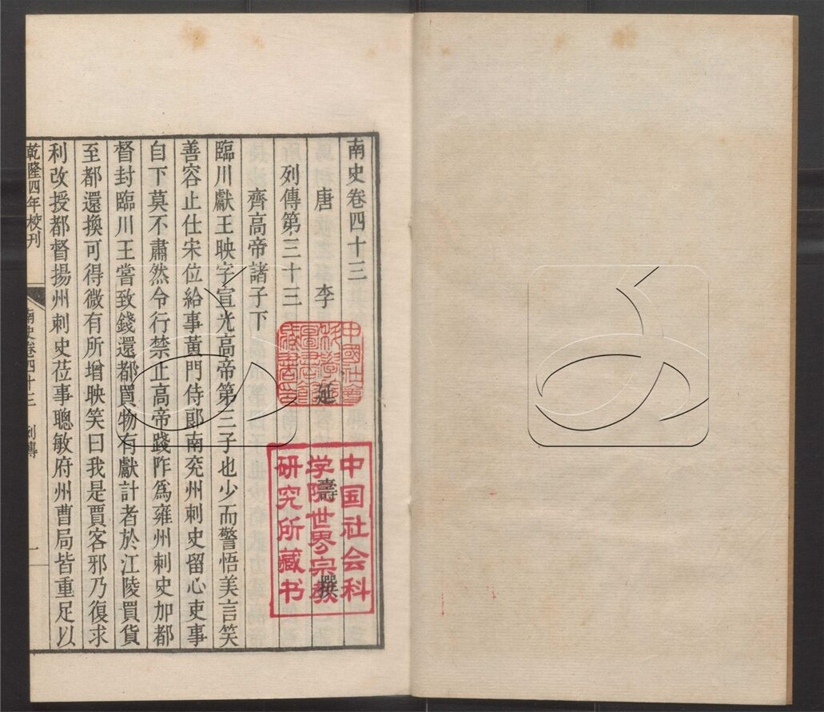 南史卷四十三
唐 李 延 壽 撰
列傳第三十三
齊高帝諸子下
臨川獻王映字宣光高帝第三子也少而警悟美言笑
善容止仕宋位給事黃門侍郎南兗州刺史留心吏事
自下莫不肅然令行禁止高帝踐阼爲雍州刺史加都
督封臨川王嘗致錢還都買物有獻計者於江陵買貨
至都還換可得微有所增映笑曰我是賈客邪乃復求
利改授都督揚州刺史莅事聰敏府州曹局皆重足以
乾隆四年校刊
南史卷四十三 列傳
一
中國社會
科學院
圖書館
藏書
中国社会科
学院世界宗教
研究所藏书